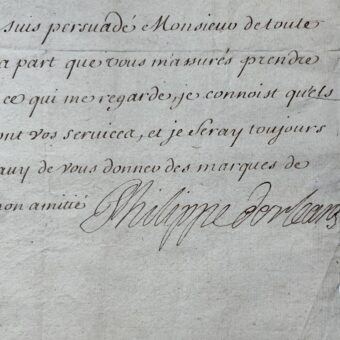 suis persuadé Monsieur de toute
a part que vous m'assurés prendre
ce qui me regarde, je connoist quels
ont vos services, et je seray toujours
auy de vous donner des marques de
mon amitié Philippe dorleans